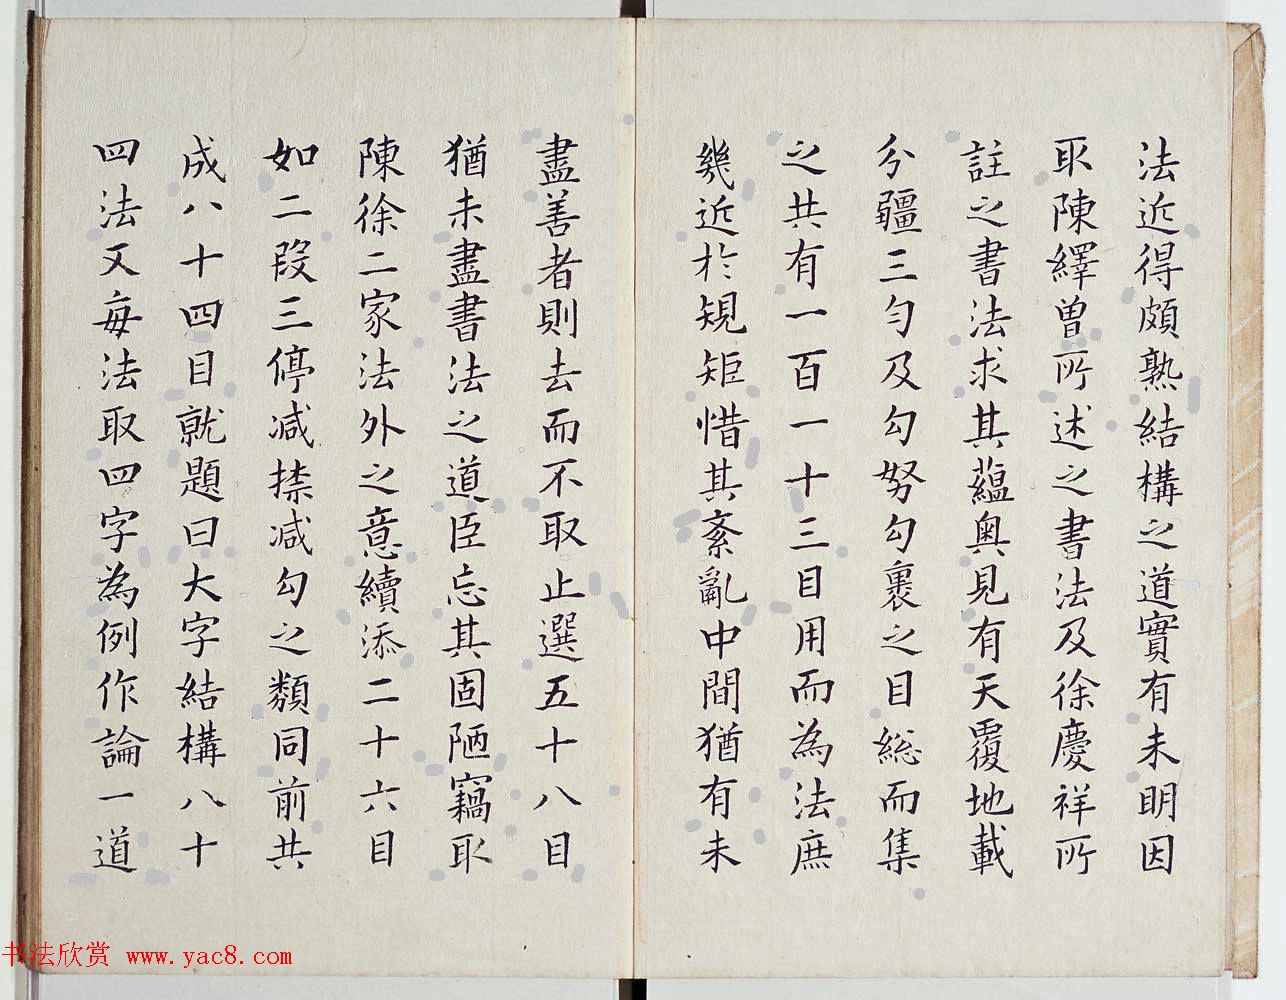 法近得頗熟結構之道實有未明因
取陳繹曾所述之書法及徐慶祥所
註之書法求其蘊奧見有天覆地載
分疆三勻及勾努勾裹之目総而集
之共有一百一十三目用而為法庶
幾近於規矩惜其紊亂中間猶有未
盡善者則去而不取止選五十八目
猶未盡書法之道臣忘其固陋竊取
陳徐二家法外之意續添二十六目
如二段三停減捺减勾之類同前共
成八十四目就題曰大字結構八十
四法又每法取四字為例作論一道
书法欣赏 www.yac8.com